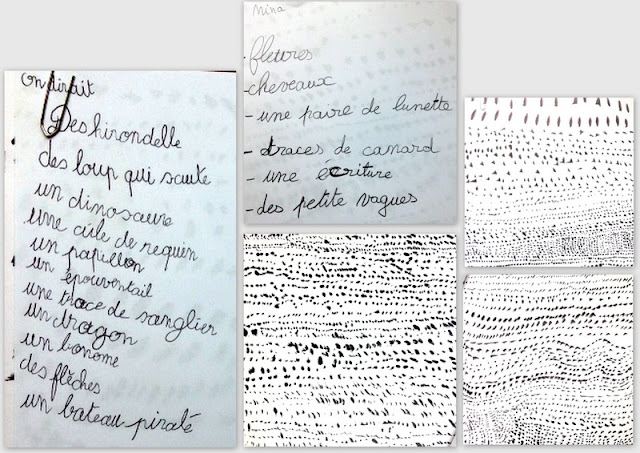 On dirait
Des hirondelle
des loup qui saute
un dinosaure
une aile de requin
un papillon
un épouventail
une trace de sanglier
un dragon
un bonome
des flèches
un bateau piraté
Nina
- fleures
- cheveaux
- une paire de lunette
- traces de canard
- une écriture
- des petite vagues